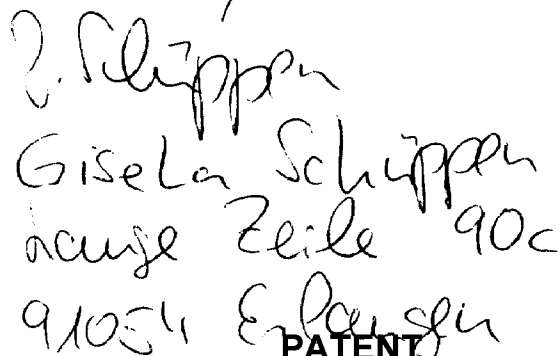 G. Schüppen
Gisela Schüppen
Lange Zeile 90c
91054 Erlangen
PATENT